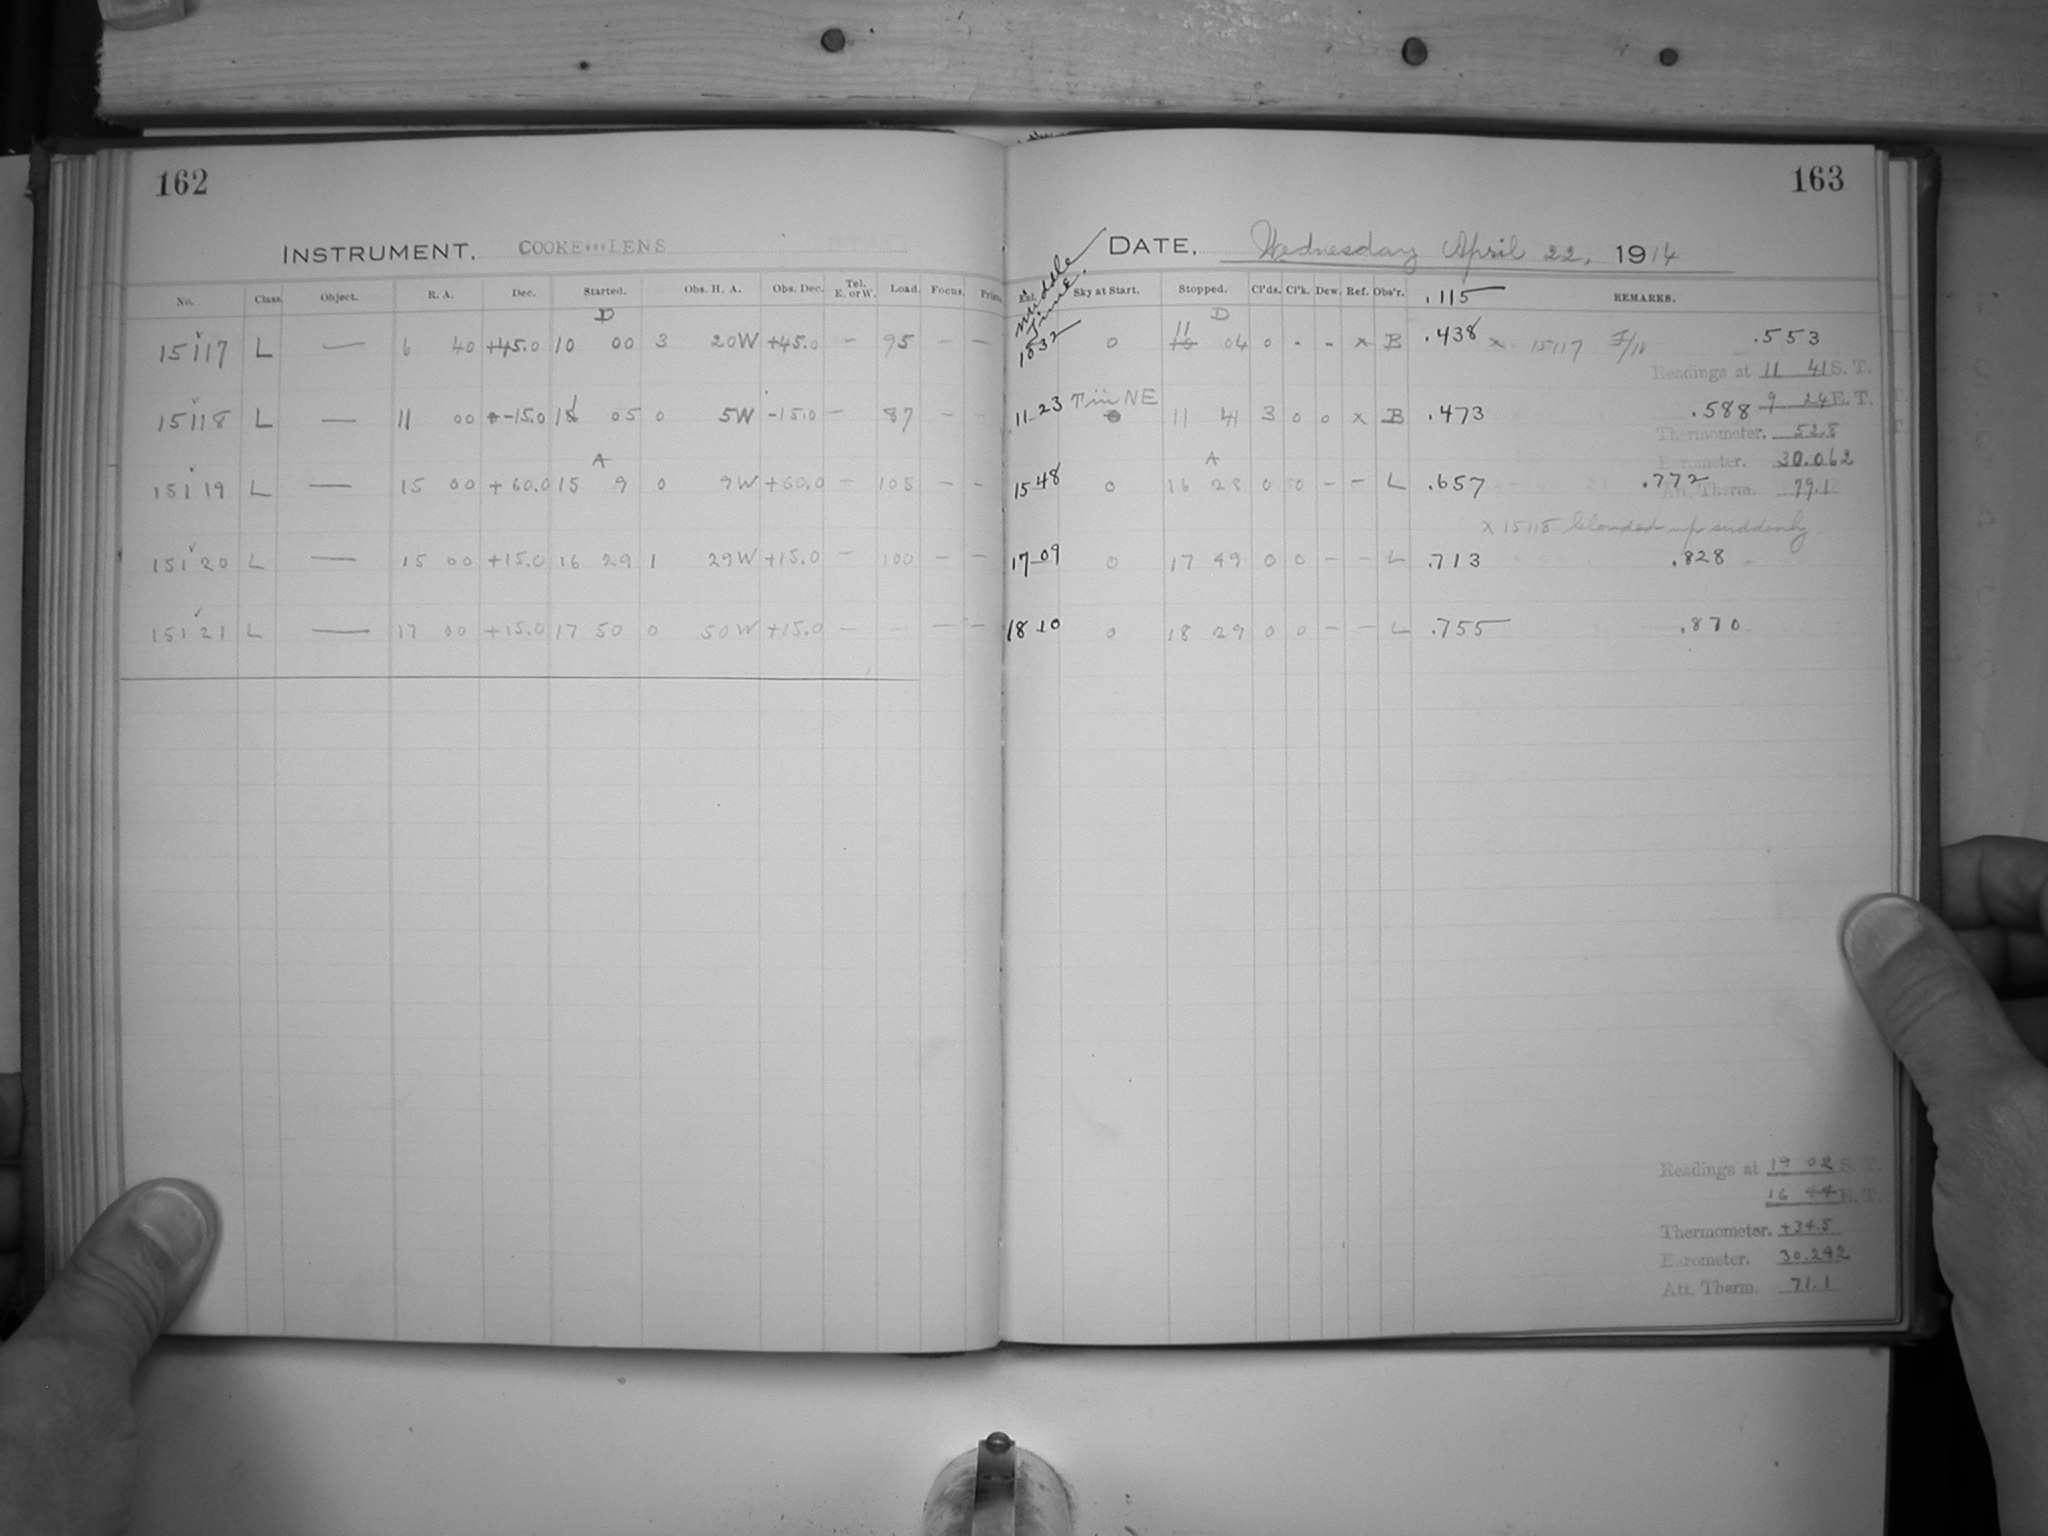 162
INSTRUMENT. COOKE LENS
No. Class. Object. R. A. Dec. Started. Obs. H. A. Obs. Dec. Tel. E. or W. Load. Focus. Prism.
D
15117 L — 6 40 +45.0 10 00 3 20W +45.0 – 95 – –
15118 L — 11 00 -15.0 05 0 5W -15.0 – 87 – –
A
15119 L — 15 00 +60.0 15 9 0 9W +60.0 – 105 – –
15120 L — 15 00 +15.0 16 29 1 29W +15.0 – 100 – –
15121 L — 17 00 +15.0 17 50 0 50W +15.0 – – –
163
DATE. Wednesday April 22, 1914
Middle Time.
Sky at Start. Stopped. Cl'ds. Cl'k. Dew. Ref. Obs'r. .115 REMARKS.
D
1032 0 11 04 0 - - x B .438 x 15117 .553
Readings at 11 41 S. T.
11 23 Tin NE 11 41 3 0 0 x B .473 .588 9 24 E. T.
Thermometer. 52.8
Barometer. 30.062
A
15 48 0 16 28 0 0 – – L .657 .772 Att. Therm. 79.1
x 15118 Clouded up suddenly
17 09 0 17 49 0 0 – – L .713 .828
18 10 0 18 29 0 0 – – L .755 .870
Readings at 19 02 S. T.
16 44 E. T.
Thermometer. +34.5
Barometer. 30.242
Att. Therm. 71.1